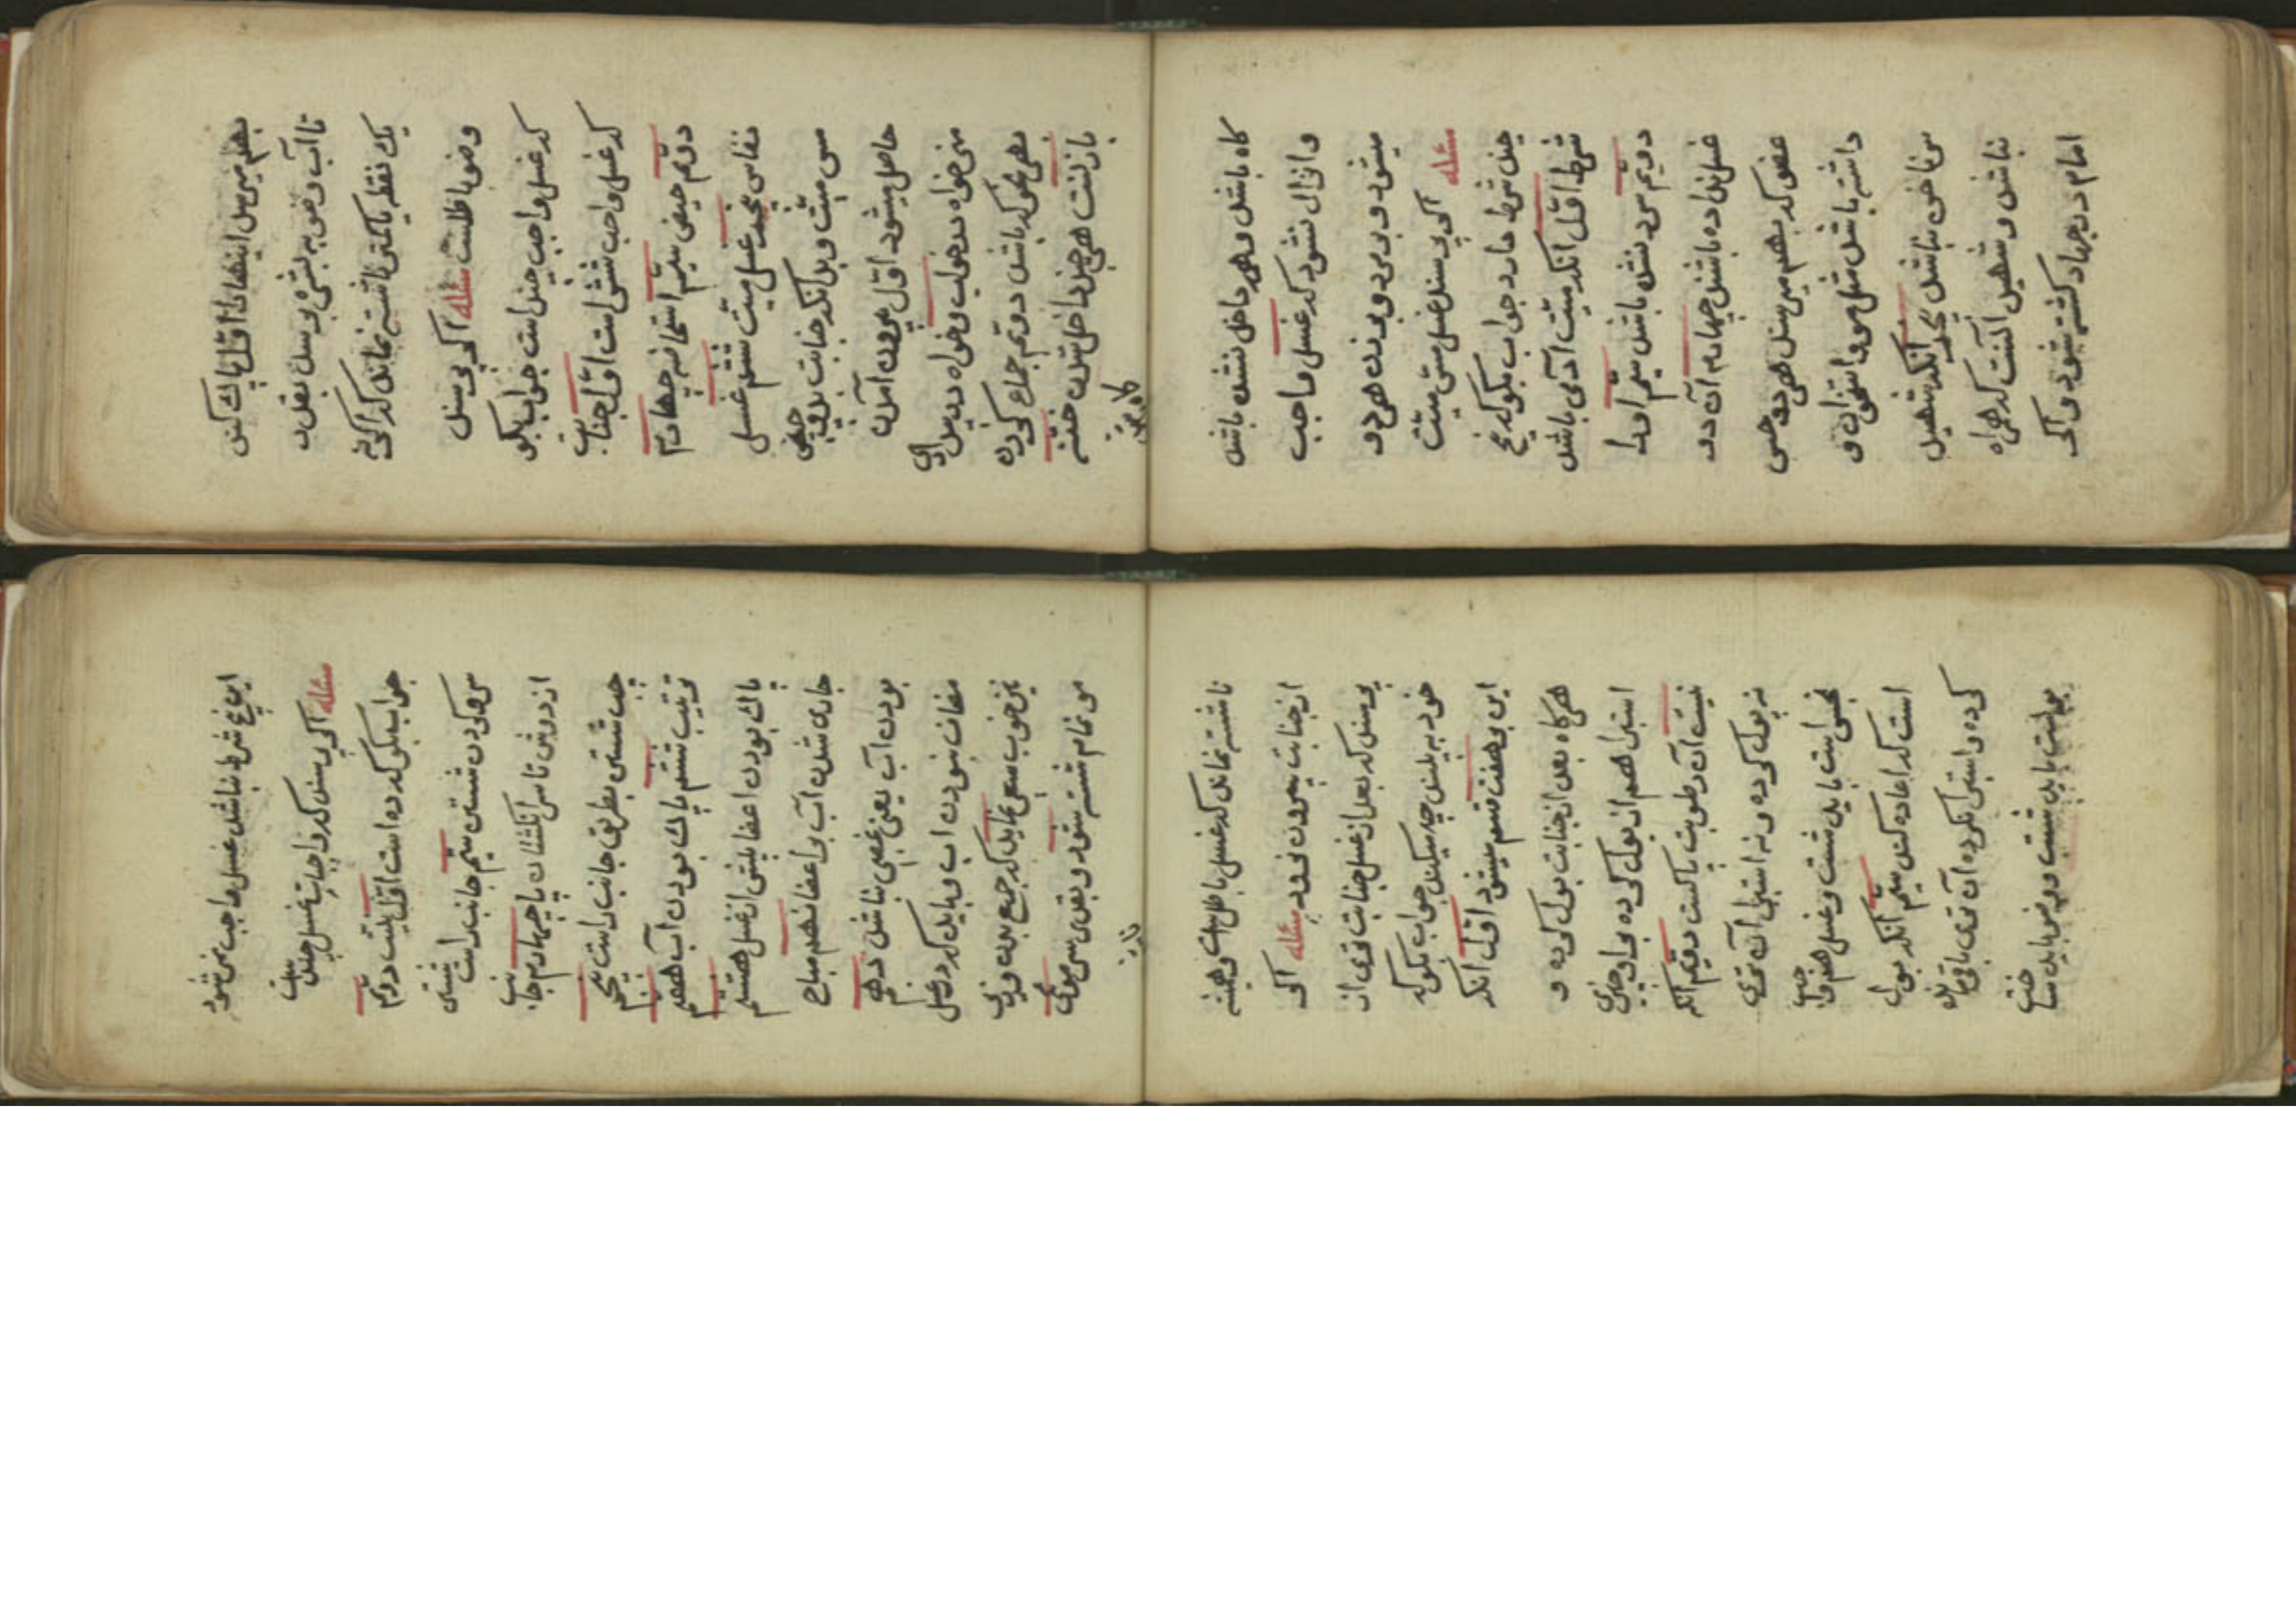 بهم میرسد اینهارا اوّل پاك كند
تا آب وضو به بشره برسد بقدر
یك نقطه یا كمتر ناشسته نماند كه اكر نه
وضو باطلست مسئله اكر پرسند
كه غسل واجب چند است جواب بكو
كه غسل واجب شش است اوّل جنابت
دویم حیض سیّم استحاضه چهارم
نفاس پنجم غسل میّت ششم غسل
مس میّت و بدانكه جنابت بدو چیز
حاصل میشود اوّل بیرون آمدن
منی خواه در خواب و خواه در بیداری
بهر نحو كه باشد دویم جماع كردن
با زنست هرچند داخل شدن ختنه
كاه
كاه باشد و هرچه داخل نشده باشد
و انزال نشود كه غسل واجب
میشود و بر مرد و بر زن هر دو
مسئله اكر پرسند غسل مس میّت
چند شرط دارد جواب بكو كه پنج
شرط اوّل آنكه میّت آدمی باشد
دویّم سرد شده باشد سیّم او را
غسل نداده باشند چهارم آن دو
عضو كه بهم میرسند هر دو حس
داشته باشد مثل مو و استخوان و
سر ناخن نباشد پنجم آنكه شهید
نباشد و شهید آنست كه همراه
امام در جهاد كشته شود و اكر
این پنج شرط نباشد غسل واجب نمیشود
مسئله اكر پرسند كه واجبات غسل چند است
جواب بكو كه ده است اوّل نیّت دویّم
سر و كردن شستن سیّم جانب راست شستن
از دوش تا سر انكشتان پا چهارم جانب
چپ شستن بطریق جانب راست پنجم
ترتیب ششم پاك بودن آب هفتم
پاك بودن اعضا پیش از غسل هشتم
جاری شدن آب بر اعضا نهم مباح
بودن آب یعنی غصبی نباشد دهم
مضاف نبودن آب و باید كه در غسل
نیز خوب سعی نماید كه جمیع بدن و زیر
مو تمام شسته شود و بقدر سر موی
ناشسته نماند كه غسل باطلست و همیشه
از جنابت بیرون نرود مسئله اكر
پرسند كه بعد از غسل جنابت تری از
خود به بیند چه میكند جواب بكو كه
این بر هفت قسم میشود اوّل آنكه
هركاه بعد از جنابت بول كرده و
استبرا هم از بول كرده بر او چیزی
نیست آن رطوبت پاكست دویّم آنكه
نه بول كرده و نه استبرا آن تری
نجس است باید شست و غسل هم واجب
است كه اعاده كند سیّم آنكه بول
كرده و استبرا نكرده آن تری باقیمانده
بولست باید شست و وضو باید ساخت